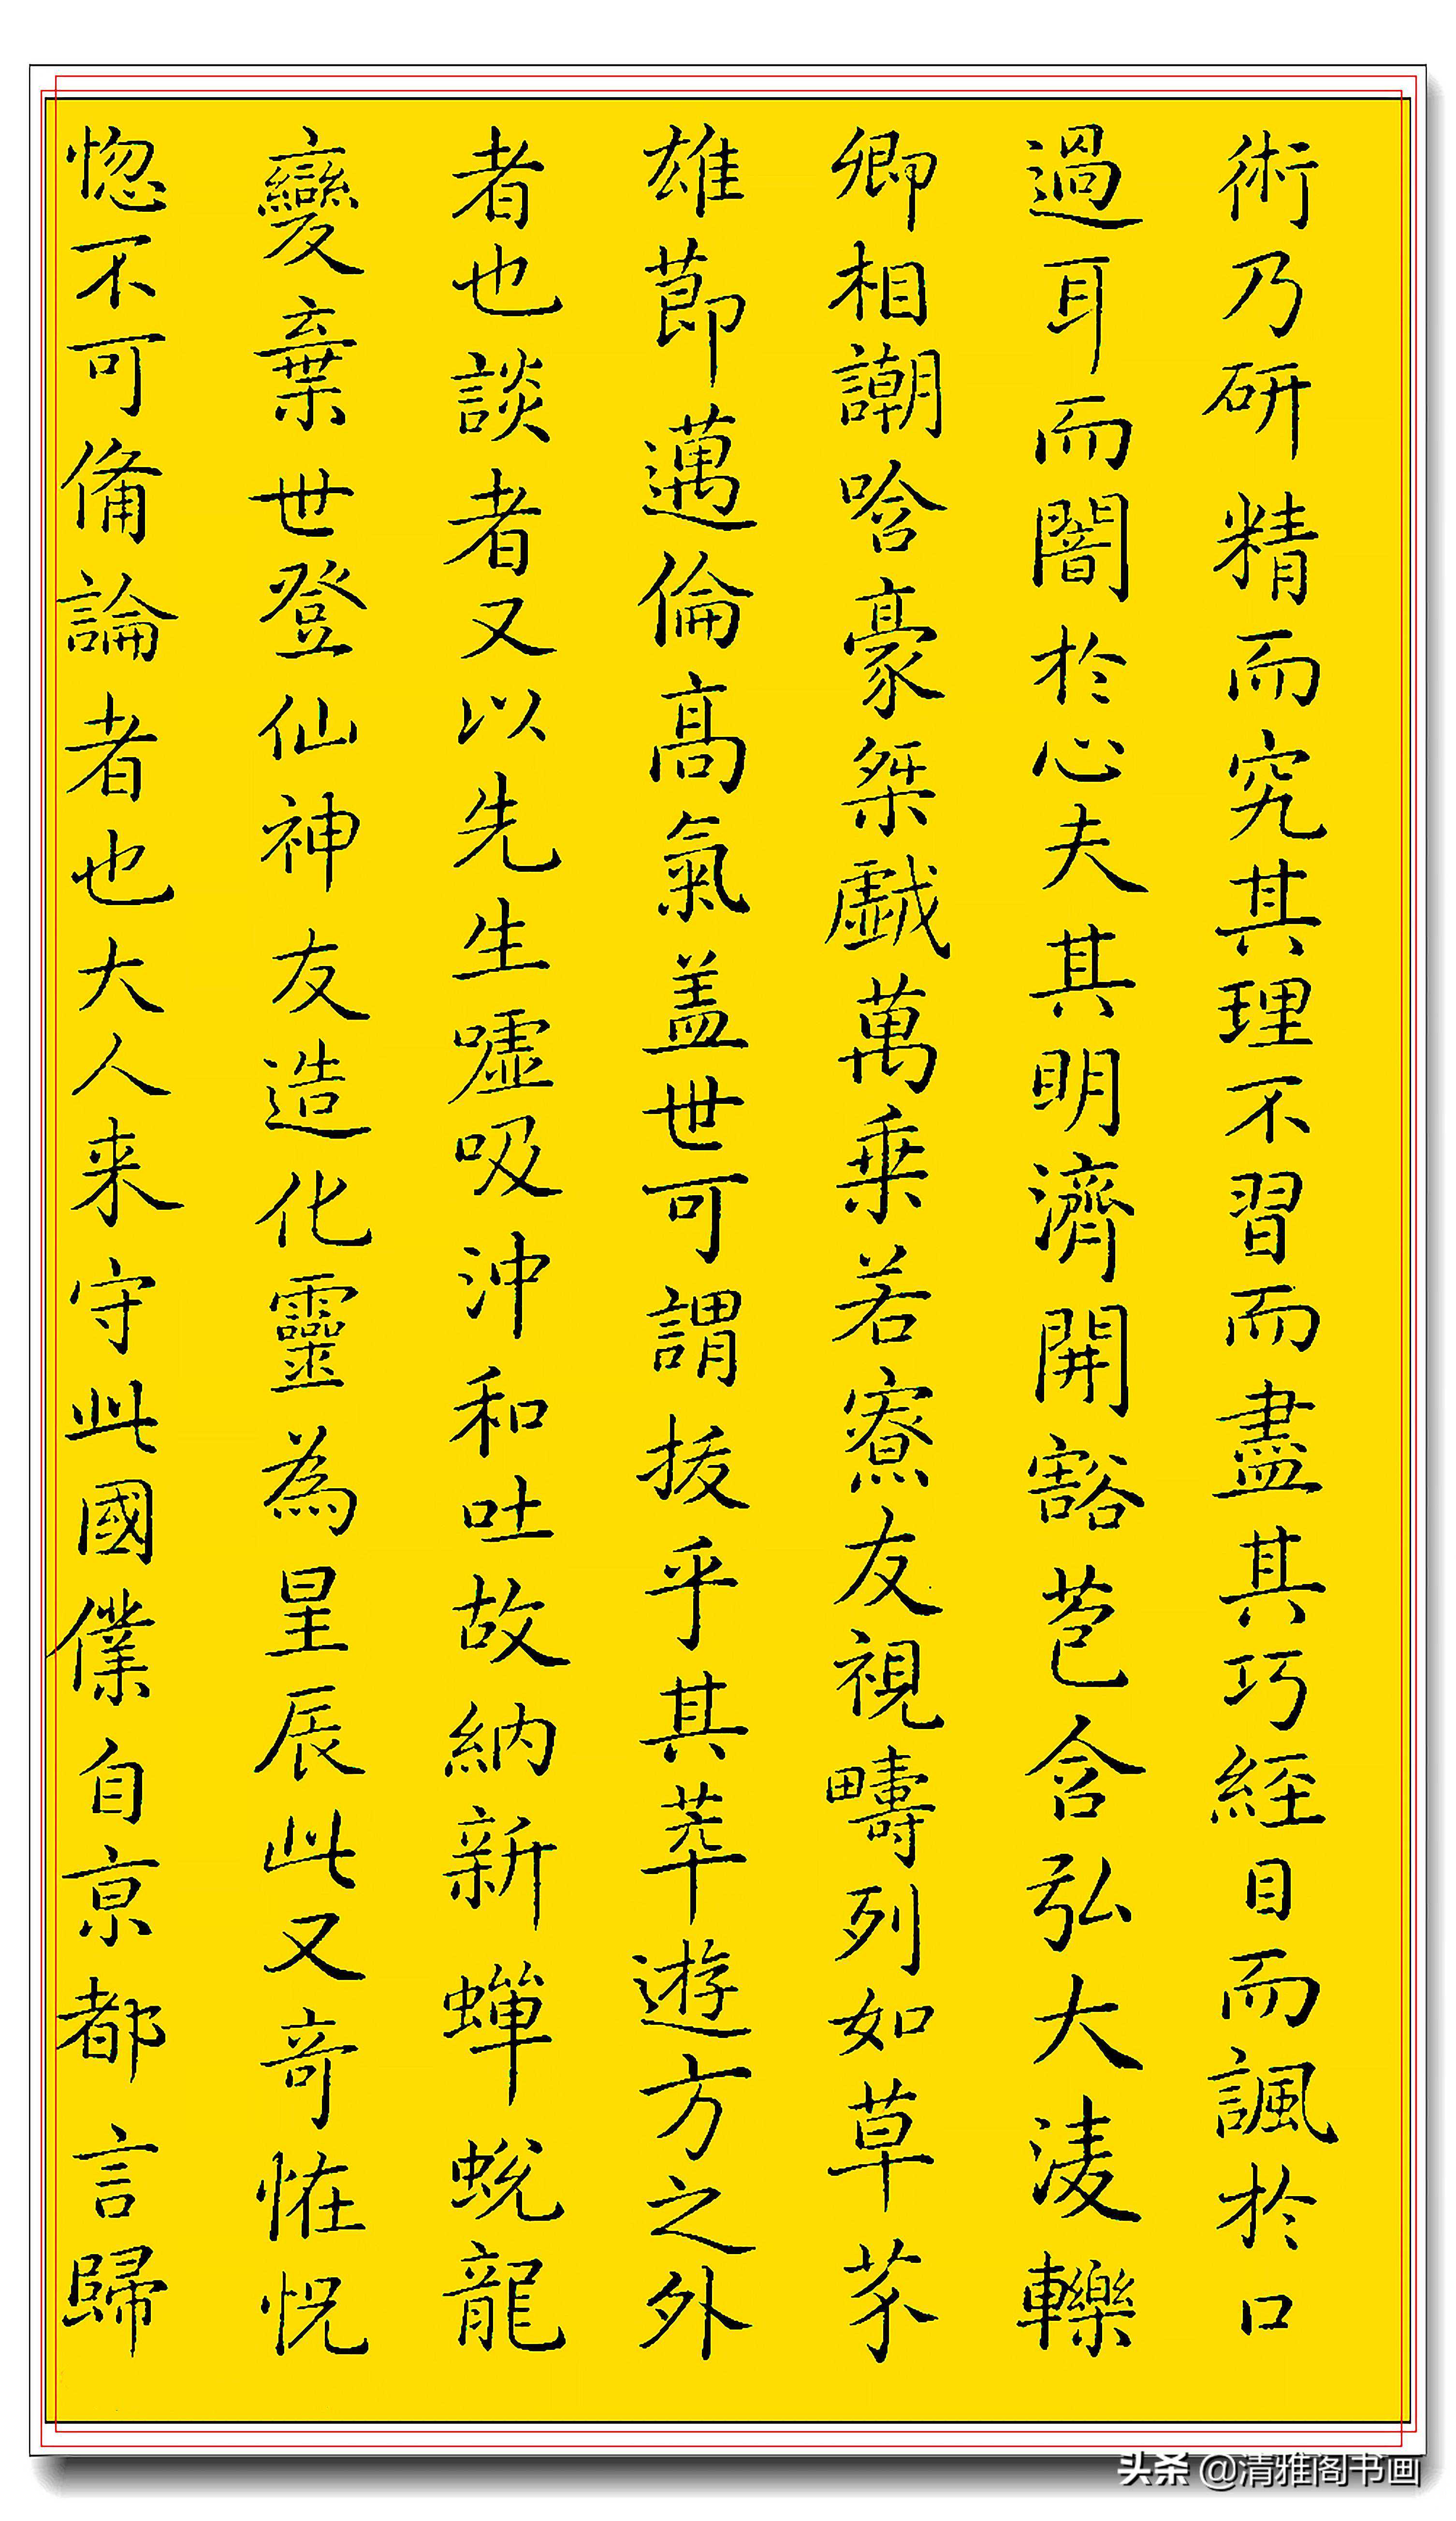 術乃研精而究其理不習而盡其巧經目而諷於口
過耳而闇於心夫其明濟開豁苞含弘大淩轢
卿相謿哈豪桀戲萬乗若寮友視疇列如草芥
雄莭邁倫高氣盖世可謂拔乎其萃遊方之外
者也談者又以先生噓吸沖和吐故納新蟬蛻龍
變棄世登仙神友造化靈為星辰此又竒恠怳
惚不可俻論者也大人来守此國僕自亰都言歸
头条 @清雅阁书画